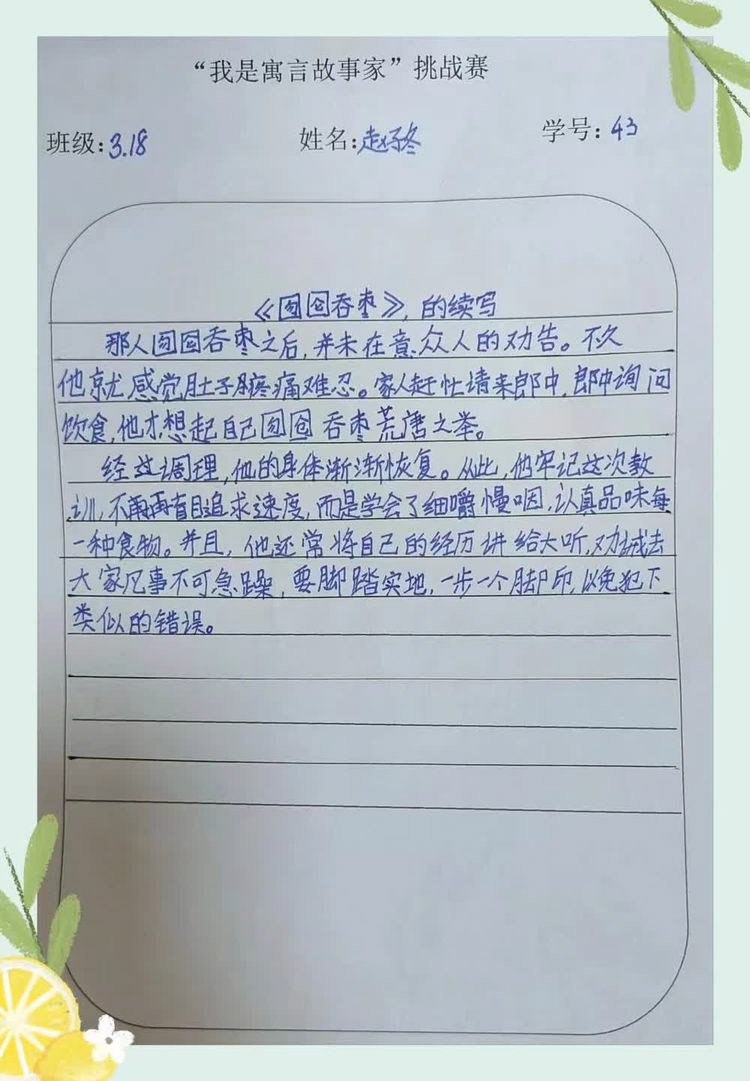 “我是寓言故事家”挑战赛
班级:3.18 姓名:赵子冬 学号:43
《囫囵吞枣》,的续写
那人囫囵吞枣之后,并未在意众人的劝告。不久
他就感觉肚子疼痛难忍。家人赶忙请来郎中,郎中询问
饮食,他才想起自己囫囵吞枣荒唐之举。
经过调理,他的身体渐渐恢复。从此,他牢记这次教
训,不再盲目追求速度,而是学会了细嚼慢咽,认真品味每
一种食物。并且,他还常将自己的经历讲给大听,劝诫
大家凡事不可急躁,要脚踏实地,一步一个脚印,以免犯下
类似的错误。